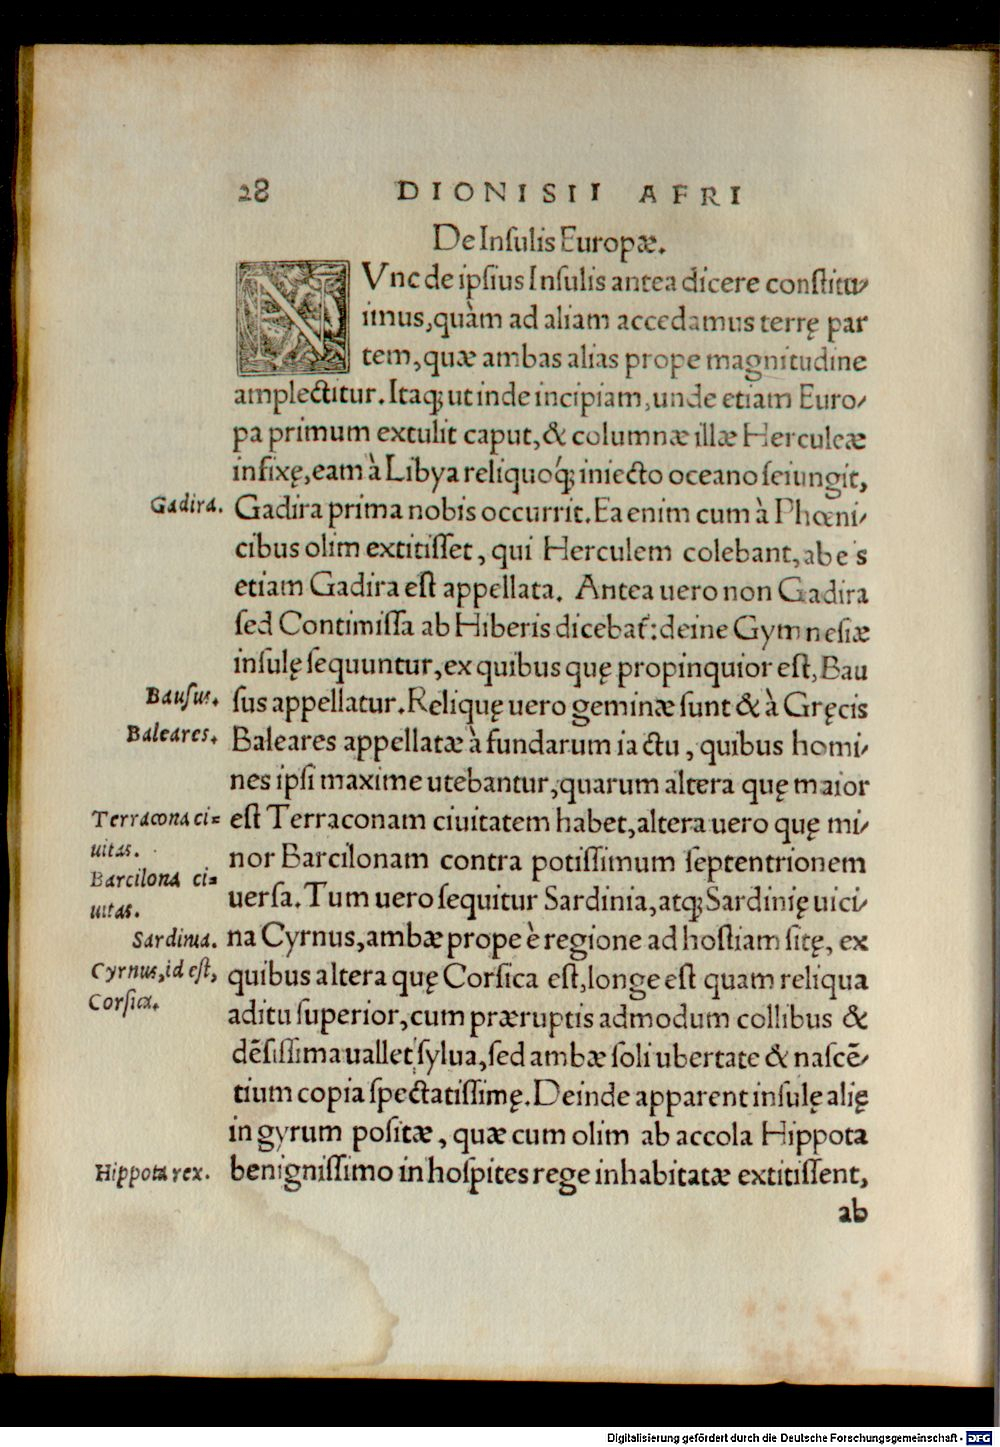 28 DIONISII AFRI
De Insulis Europæ.
NVnc de ipsius Insulis antea dicere constitu-
imus, quàm ad aliam accedamus terrę par
tem, quæ ambas alias prope magnitudine
amplectitur. Itaq; ut inde incipiam, unde etiam Euro-
pa primum extulit caput, & columnæ illæ Herculeæ
infixę, eam à Libya reliquoq́; iniecto oceano seiungit,
Gadira.
Gadira prima nobis occurrit. Ea enim cum à Phœni-
cibus olim extitisset, qui Herculem colebant, ab e s
etiam Gadira est appellata. Antea uero non Gadira
sed Contimissa ab Hiberis dicebat̃: deine Gymnesiæ
insulę sequuntur, ex quibus quę propinquior est, Bau
Bausus.
sus appellatur. Reliquę uero geminæ sunt & à Gręcis
Baleares.
Baleares appellatæ à fundarum iactu, quibus homi-
nes ipsi maxime utebantur, quarum altera quę maior
Terracona ci=
est Terraconam ciuitatem habet, altera uero quę mi-
uitas.
nor Barcilonam contra potissimum septentrionem
Barcilona ci=
uersa. Tum uero sequitur Sardinia, atq; Sardinię uici-
uitas.
Sardinia.
na Cyrnus, ambæ prope è regione ad hostiam sitę, ex
Cyrnus, id est,
quibus altera quę Corsica est, longe est quam reliqua
Corsica.
aditu superior, cum præruptis admodum collibus &
dẽsissima uallet sylua, sed ambæ soli ubertate & nascẽ-
tium copia spectatissimę. Deinde apparent insulę alię
in gyrum positæ, quæ cum olim ab accola Hippota
Hippota rex.
benignissimo in hospites rege inhabitatæ extitissent,
ab
Digitalisierung gefördert durch die Deutsche Forschungsgemeinschaft - DFG